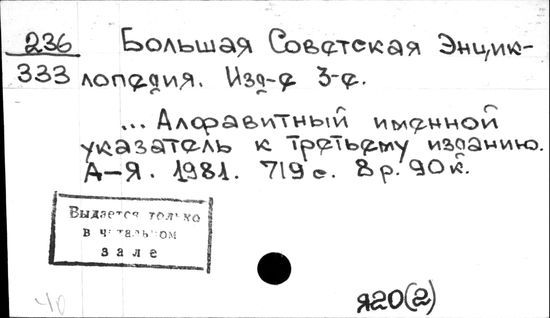 236
333
Большая Советская Энцик-
лопедия. Изд-е 3-е.
... Алфавитный именной
указатель к третьему изданию.
А-Я. 1981. 719 с. 8 р. 90 к.
Выдается только
в читальном
зале
40
Я20(2)